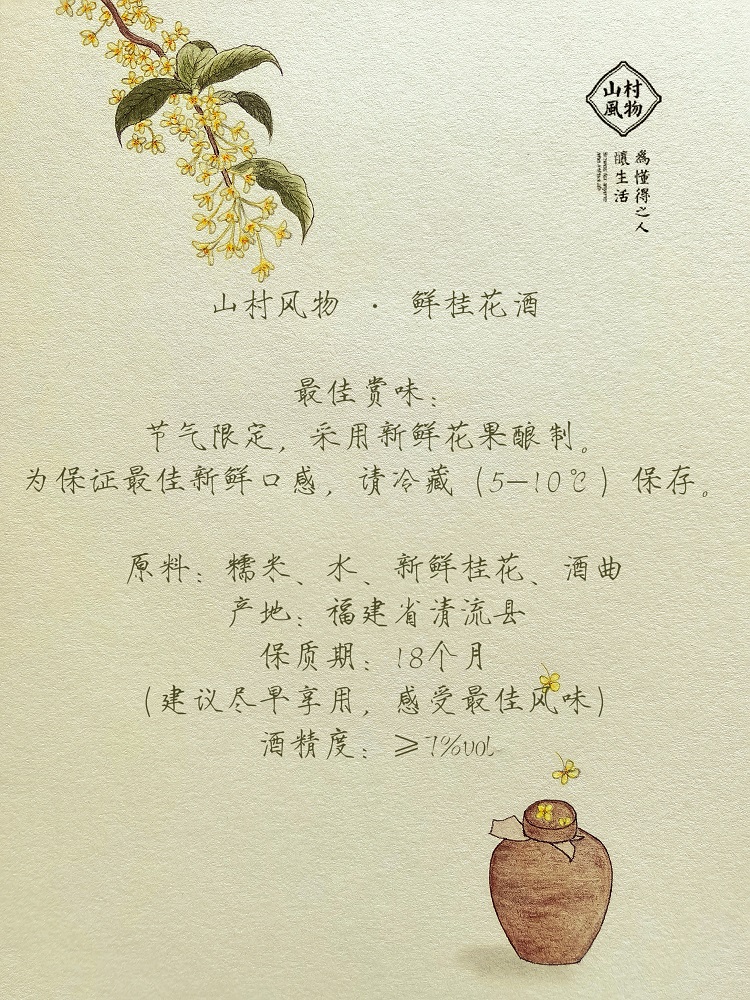 山村
風物
為懂得之人
釀生活
山村风物 · 鲜桂花酒
最佳赏味：
节气限定，采用新鲜花果酿制。
为保证最佳新鲜口感，请冷藏（5—10℃）保存。
原料：糯米、水、新鲜桂花、酒曲
产地：福建省清流县
保质期：18个月
（建议尽早享用，感受最佳风味）
酒精度：≥7%vol